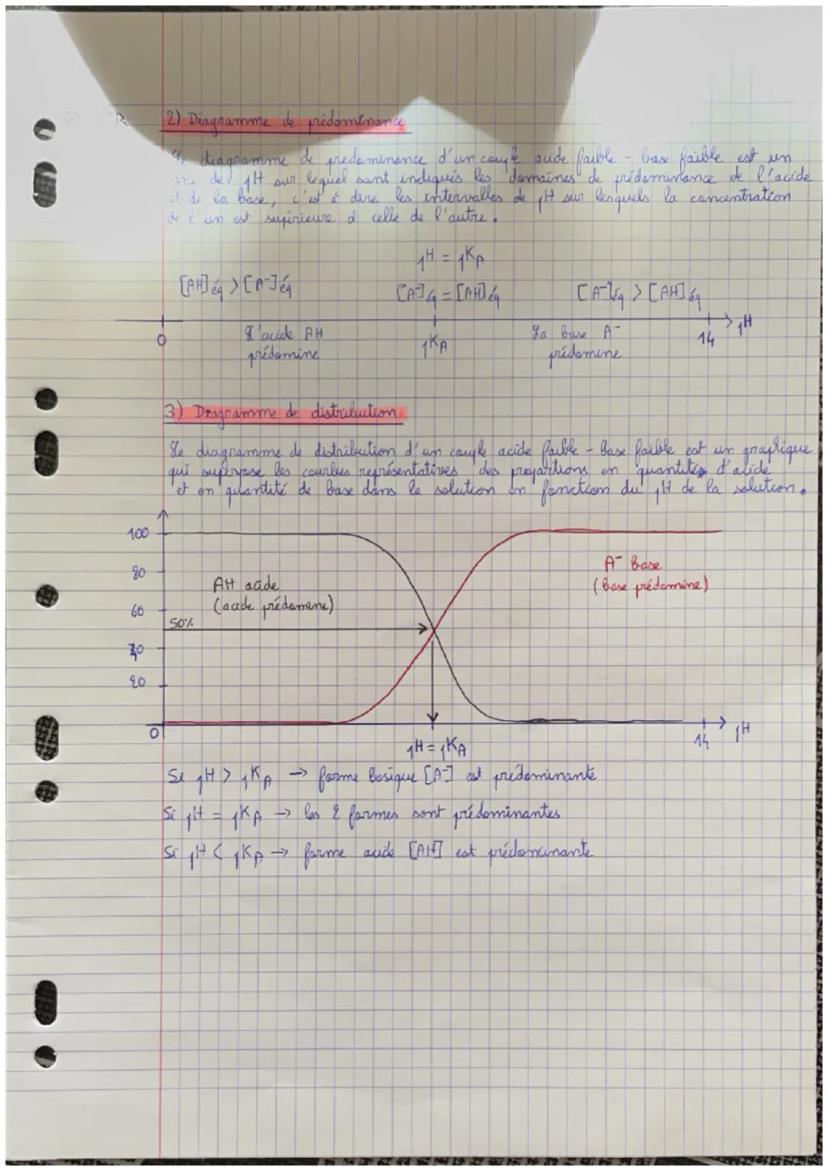 2) Diagramme de prédominance
Le diagramme de prédominance d'un couple acide faible - base faible est un
axe de pH sur lequel sont indiqués les domaines de prédominance de l'acide
et de la base, c'est à dire les intervalles de pH sur lesquels la concentration
de l'un est supérieure à celle de l'autre.
pH = pKA
[AH]éq > [A-]éq [A-]éq = [AH]éq [A-]éq > [AH]éq
0 L'acide AH pKA La base A- 14 pH
prédomine prédomine
3) Diagramme de distribution
Le diagramme de distribution d'un couple acide faible - Base faible est un graphique
qui superpose les courbes représentatives des proportions en quantités d'acide
et en quantité de base dans la solution en fonction du pH de la solution.
100
A- base
80
AH acide (base prédomine)
60 (acide prédomine)
50%
40
20
0 14 pH
pH = pKA
Si pH > pKA → forme basique [A-] est prédominante
Si pH = pKA → les 2 formes sont prédominantes
Si pH < pKA → forme acide [AH] est prédominante